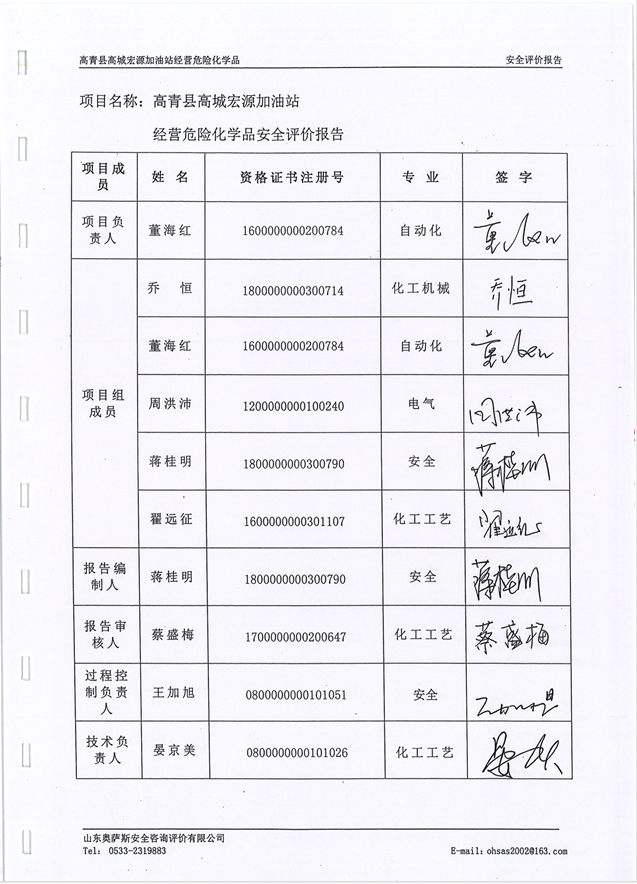 高青县高城宏源加油站经营危险化学品 安全评价报告
项目名称：高青县高城宏源加油站
经营危险化学品安全评价报告
项目成员 姓 名 资格证书注册号 专 业 签 字
项目负责人 董海红 1600000000200784 自动化
项目组成员 乔 恒 1800000000300714 化工机械 乔恒
董海红 1600000000200784 自动化
周洪沛 1200000000100240 电气 周洪沛
蒋桂明 1800000000300790 安全 蒋桂明
翟远征 1600000000301107 化工工艺 翟远征
报告编制人 蒋桂明 1800000000300790 安全 蒋桂明
报告审核人 蔡盛梅 1700000000200647 化工工艺 蔡盛梅
过程控制负责人 王加旭 0800000000101051 安全
技术负责人 晏京美 0800000000101026 化工工艺
山东奥萨斯安全咨询评价有限公司
Tel: 0533-2319883 E-mail：ohsas2002@163.com